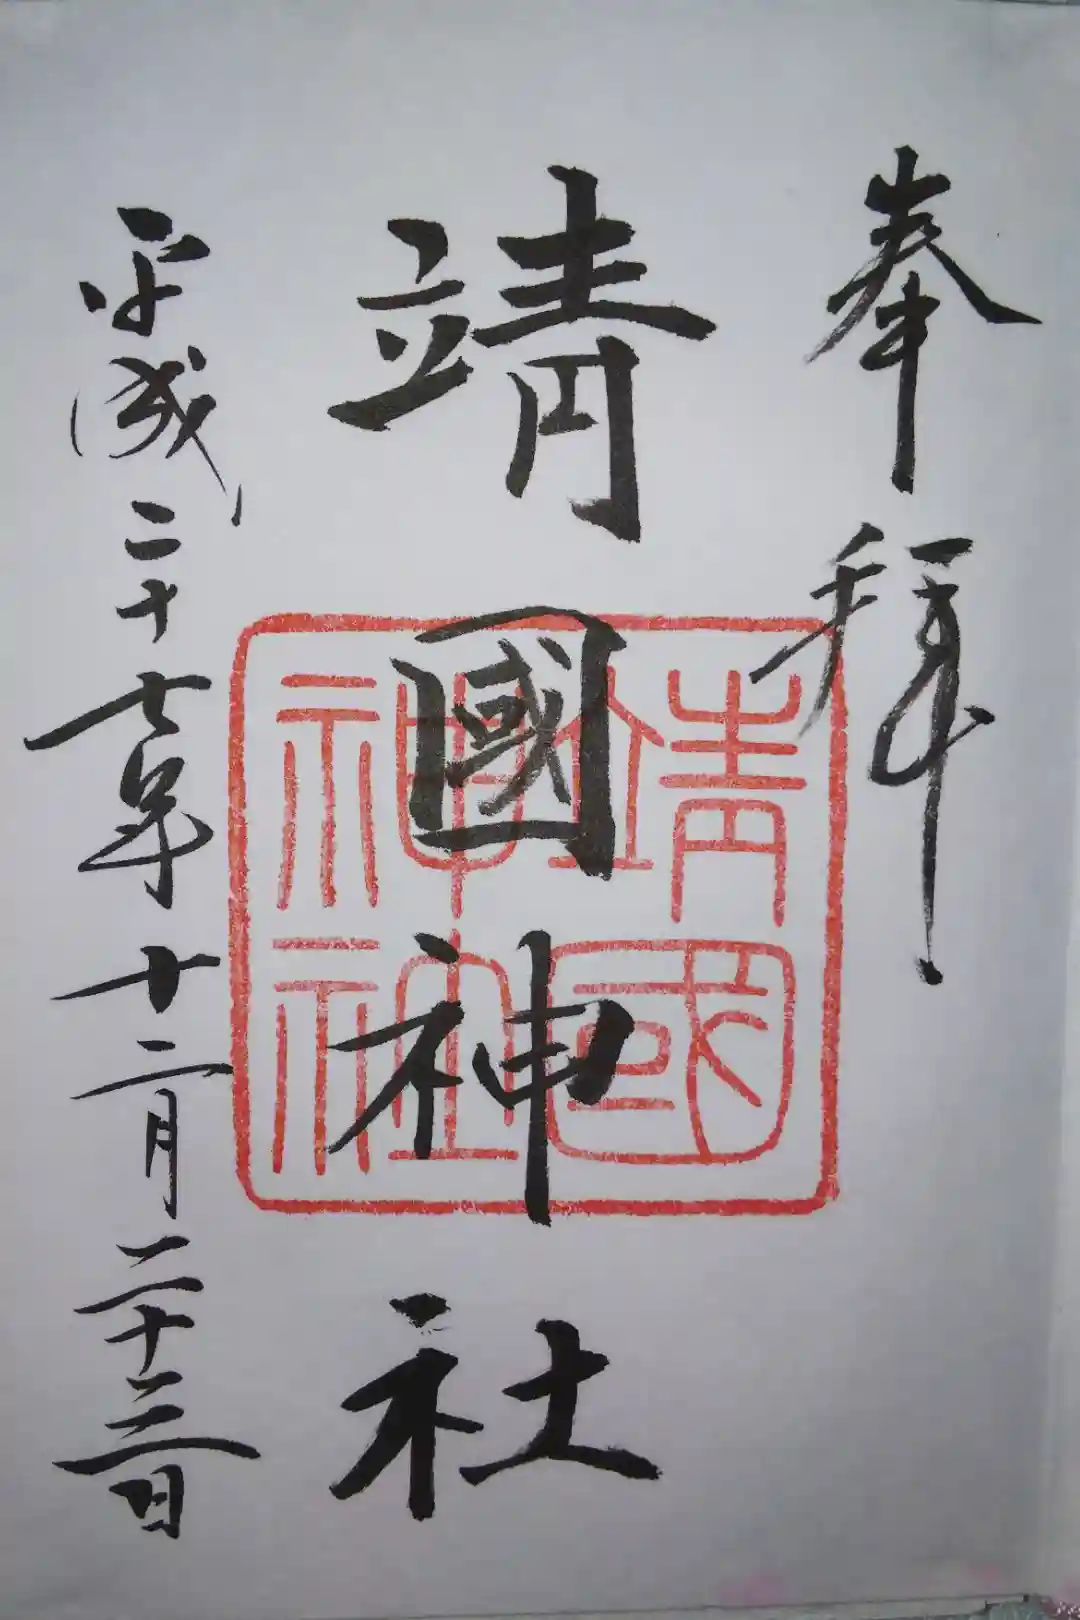 奉拝
靖國神社
靖國
神社
平成二十七年十二月二十三日